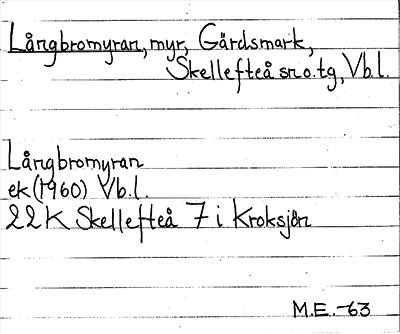 Långbromyran, myr, Gärdsmark,
Skellefteå sn o. tg, Vb.l.
Långbromyran
ek (1960) Vb.l.
22K Skellefteå 7 i Kroksjön
M.E. -63